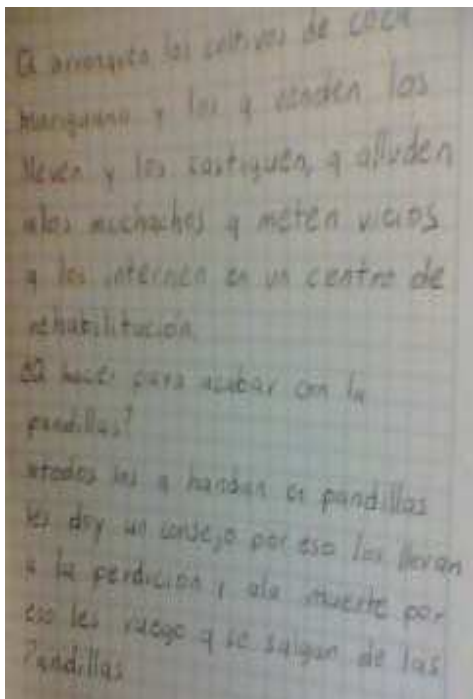 Q arranquen los cultivos de coca
mariguana y los q venden los
lleven y los castiguen, q alluden
alos muchachos q meten vicios
q los internen en un centro de
rehabilitución.
Q hacer para acabar con la
pandillas?
atodos los q handan en pandillas
les doy un consejo por eso los llevan
a la perdición y ala muerte por
eso les ruego q se salgan de las
Pandillas